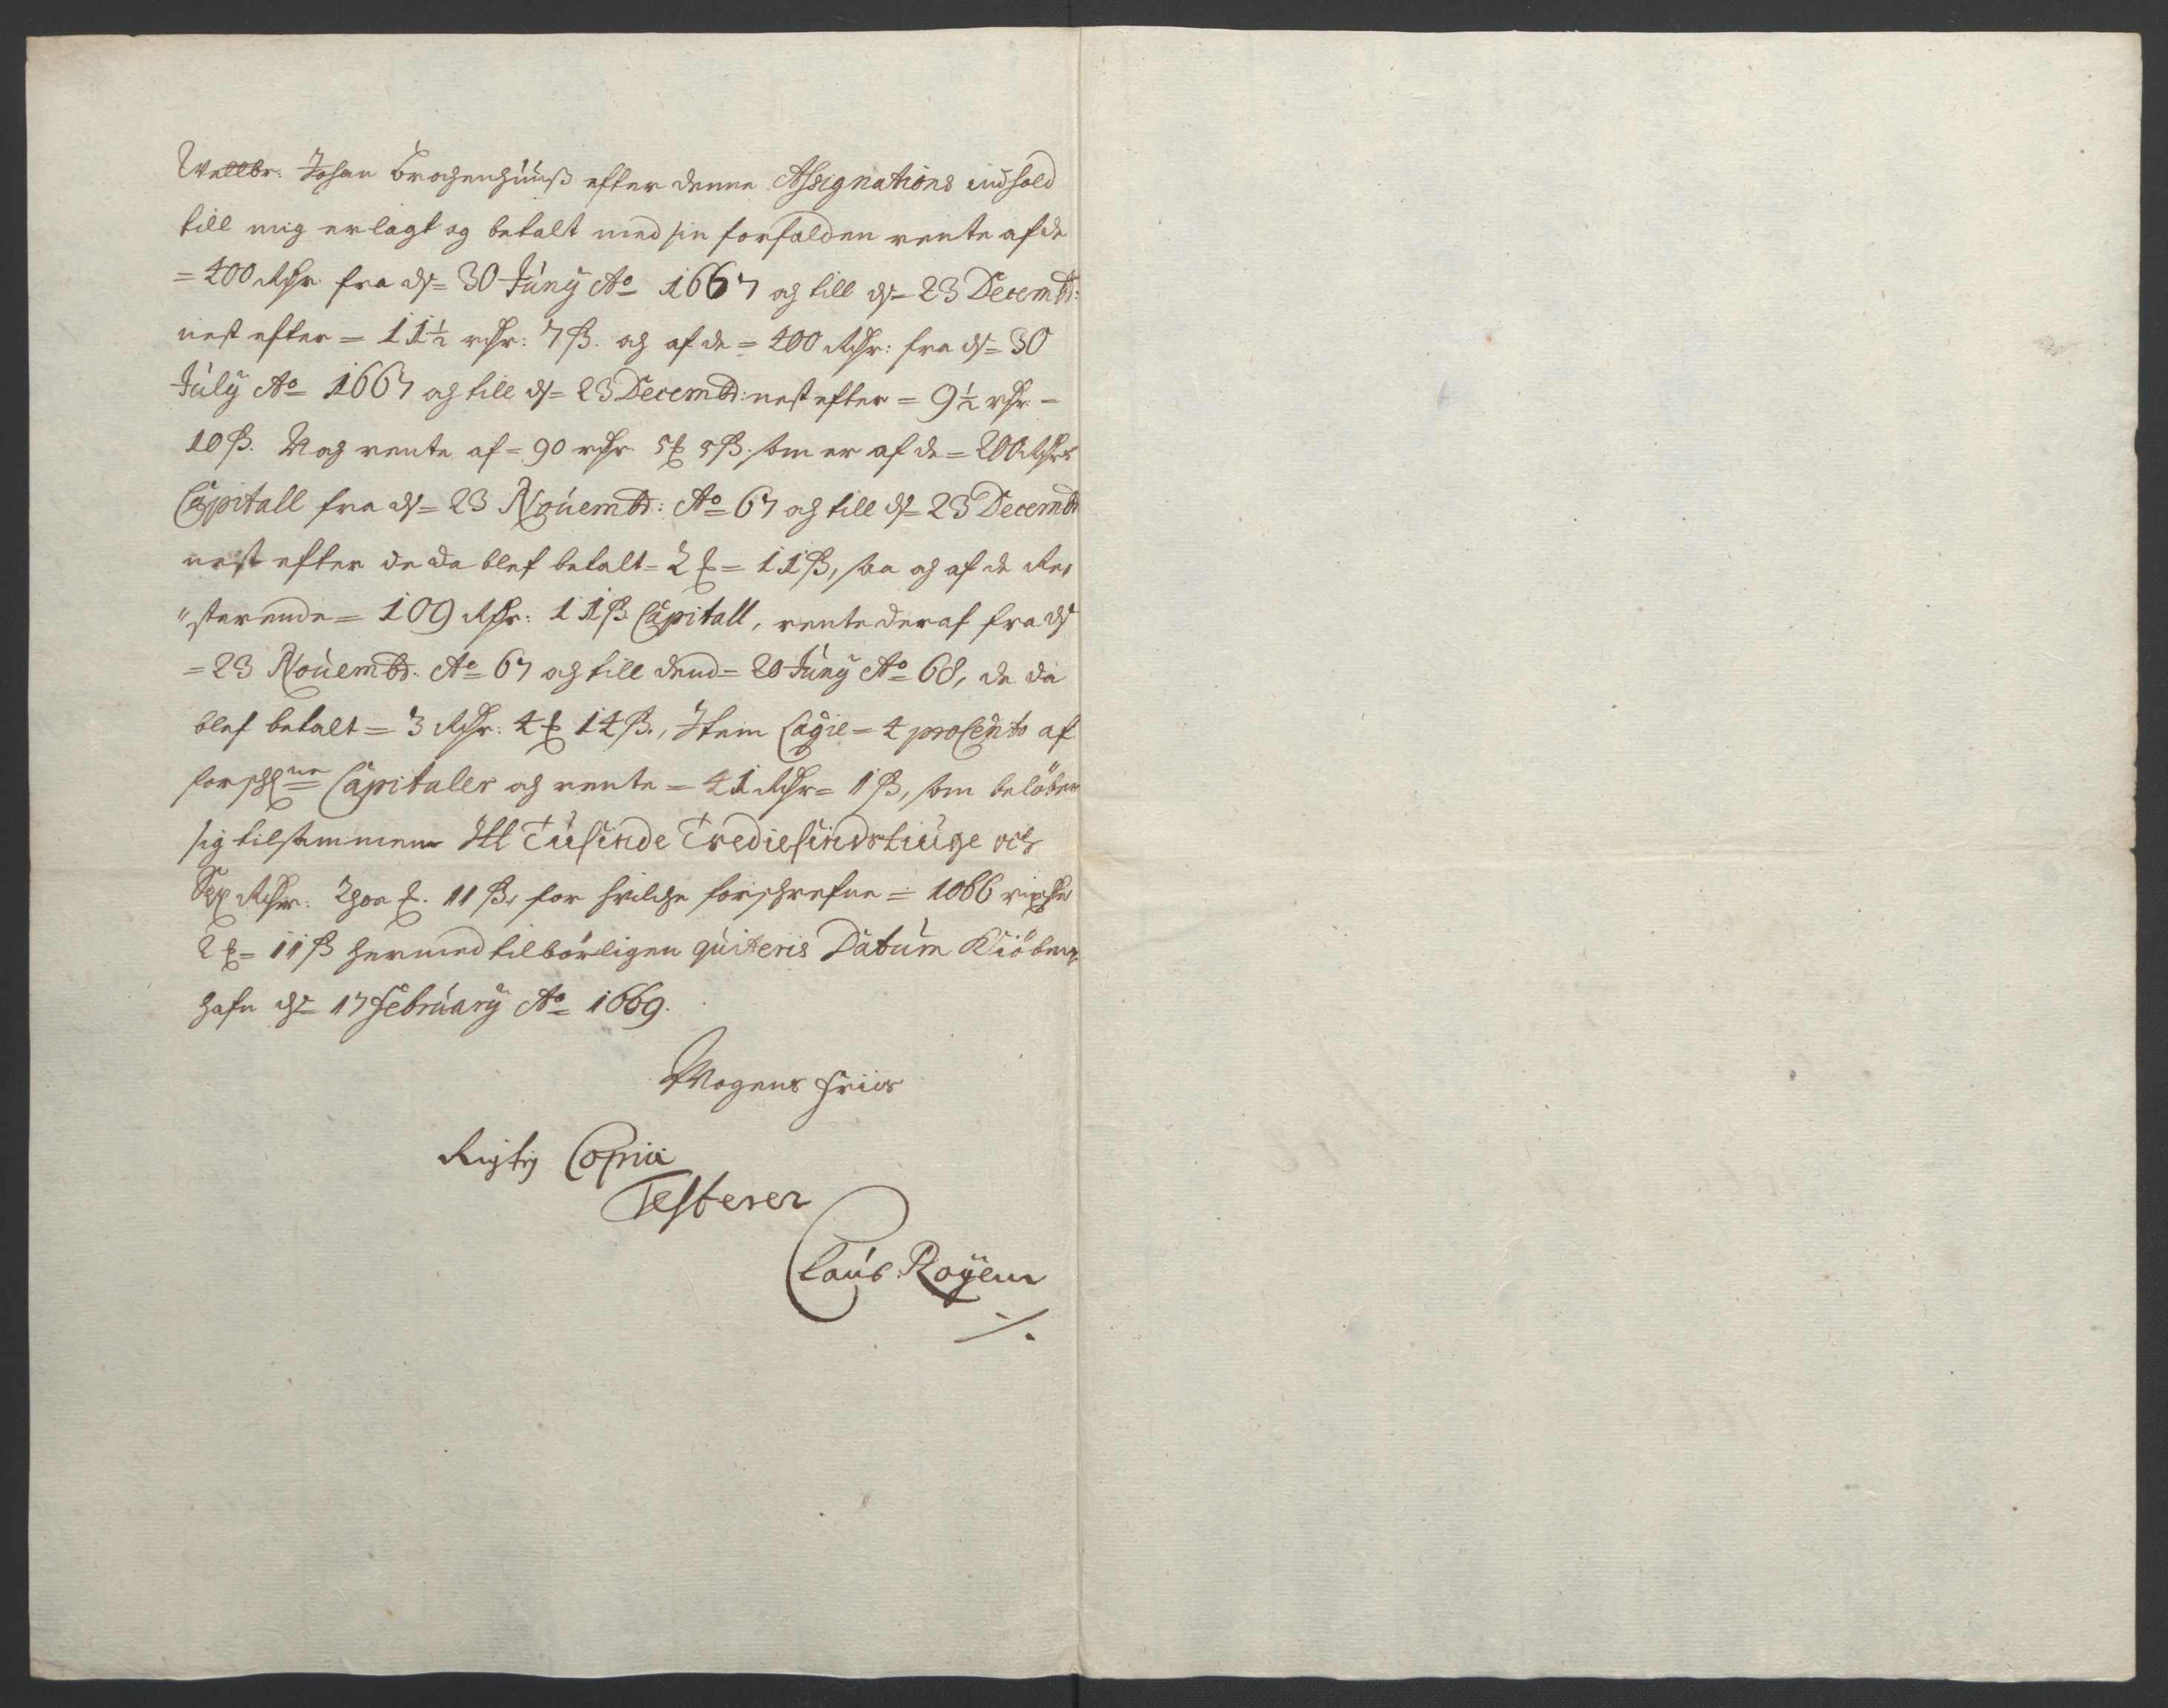 Wellbr: Johan Brochenhuuß efter denne Assignations indhold
till mig erlagt og betalt med sin forfalden rente af de
= 400 Rdr fra dn= 30 Juny Ao 1667 og till dn= 23 Decembr:
nest efter = 11½ rdr: 7 ß. og af de = 400 Rdr: fra dn= 30
July Ao 1667 og till dn= 23 Decembr: nest efter = 9½ rdr =
10 ß. Nog rente af = 90 rdr 5 ꝑ 5 ß. som er af de = 200 Rdrs
Capitall fra dn= 23 Nouembr: Ao 67 og till dn= 23 Decembr
nest efter de da blef betalt = 2 ꝑ = 11 ß, saa og af de Re,
"sterende = 109 Rdr: 11 ß Capitall, rente deraf fra dn
= 23 Nouembr: Ao 67 og till dend = 20 Juny Ao 68, de da
blef betalt = 3 Rdr: 4 ꝑ 14 ß., Item Lagie = 4 proCento af
forschne Capitaler og rente = 41 Rdr = 1 ß, som beløber
sig tilsammen Itt Tusinde Trediesindstiuge och
Sex Rdr: Thoe ꝑ. 11 ß, for huilche forschrefne = 1066 rixdr
2 ꝑ = 11 ß hermed tilbørligen quiteris Datum Kiøben,
hafn dn= 17 February Ao 1669.
Mogens Friis
Rigtig Copia
Testerer
Claus Røyem